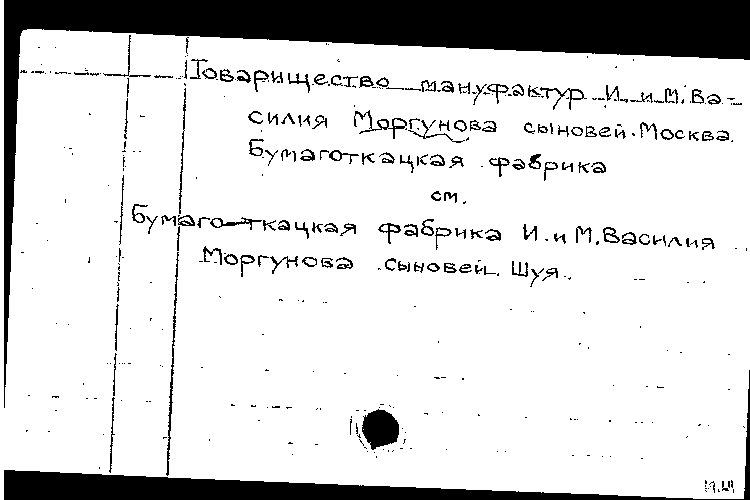 Товарищество мануфактур И. и М. Ва-
силия Моргунова сыновей. Москва.
Бумаготкацкая фабрика
см.
Бумаго-ткацкая фабрика И. и М. Василия
Моргунова сыновей. Шуя.